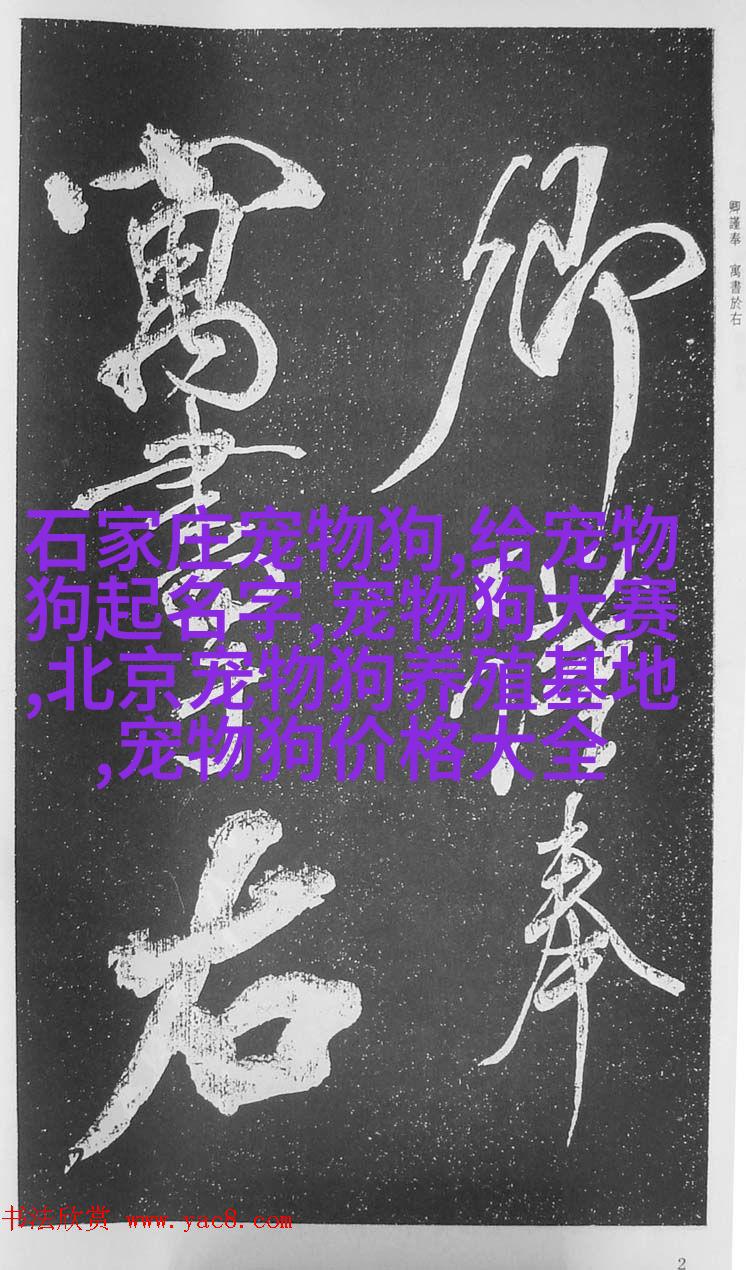 卿謹奉　寓書於右
卿謹奉
寓書於右
石家庄宠物狗,给宠物
狗起名字,宠物狗大赛
,北京宠物狗养殖基地
,宠物狗价格大全
书法欣赏 www.yac8.com
2